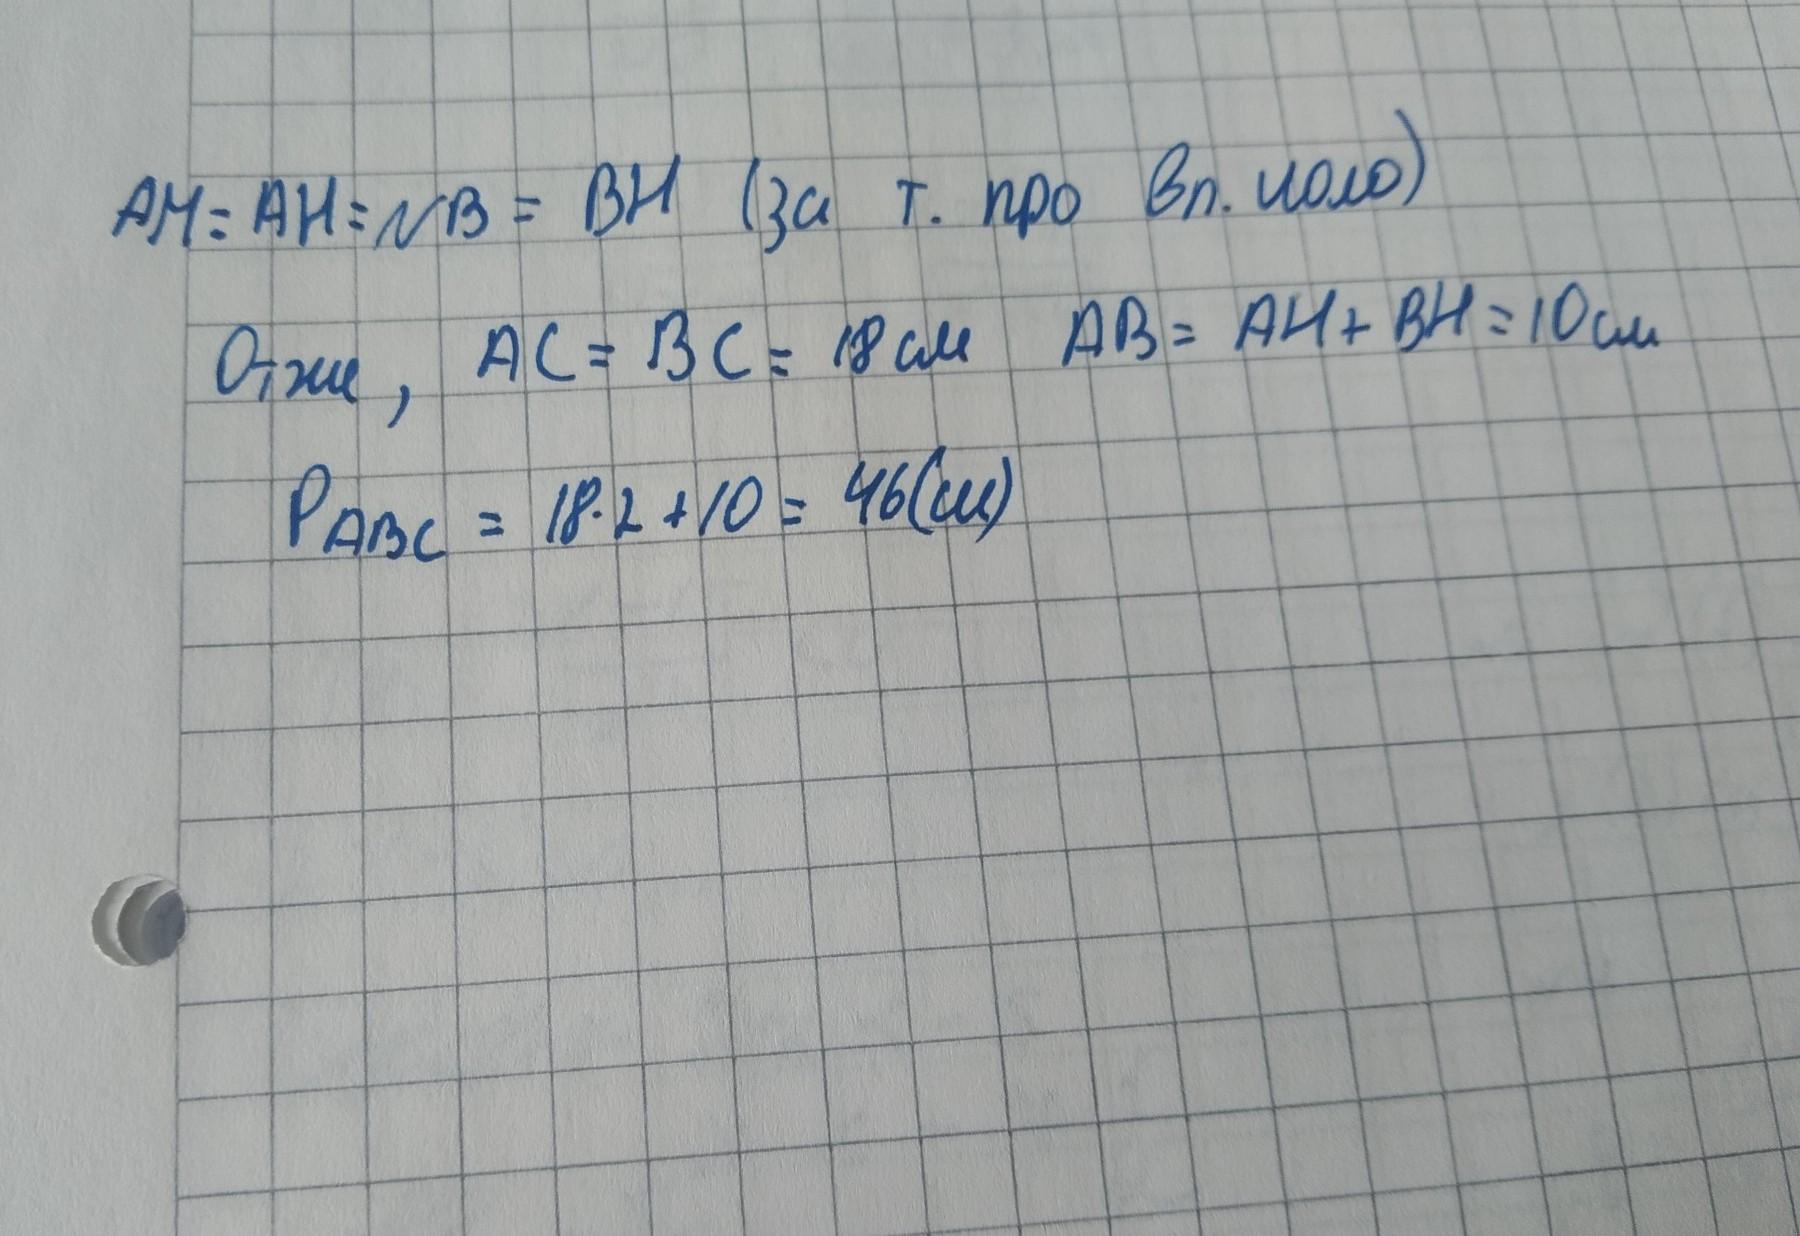 AM = AH = NB = BH (за т. про вп. коло)
Отже, AC = BC = 18 см AB = AH + BH = 10 см
P ABC = 18·2 + 10 = 46 (см)